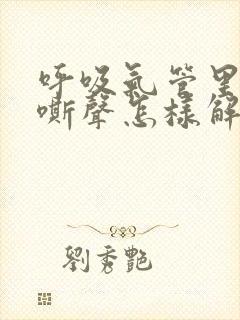 呼吸氣管里
嘶聲怎樣解
劉秀艷